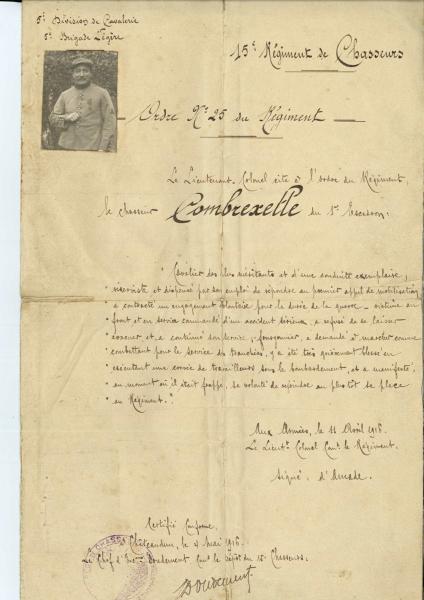 5e Division de Cavalerie
5e Brigade Légère
15e Régiment de Chasseurs
Ordre No 25 du Régiment
Le Lieutenant-Colonel cite à l'ordre du Régiment,
le chasseur Combrexelle du 1er Escadron:
"Cavalier des plus méritants et d'une conduite exemplaire,
" réserviste et dispensé par son emploi de répondre au premier appel de mobilisation,
" a contracté un engagement volontaire pour la durée de la guerre - victime au
" front et en service commandé d'un accident sérieux, a refusé de se laisser
" évacuer et a continué son service, fourgonnier, a demandé à marcher comme
" combattant pour le service des tranchées, y a été très grièvement blessé en
" exécutant une corvée de travailleurs sous le bombardement, et a manifesté,
" au moment où il était frappé, sa volonté de rejoindre au plus tôt sa place
" au Régiment."
Aux Armées, le 11 Avril 1916.
Le Lieutt Colonel Comt le Régiment.
Signé: d'Amade.
Certifié Conforme
Châteaudun, le 4 Mai 1916
Le Chef d'Escons Comt le dépôt du 15e Chasseurs.